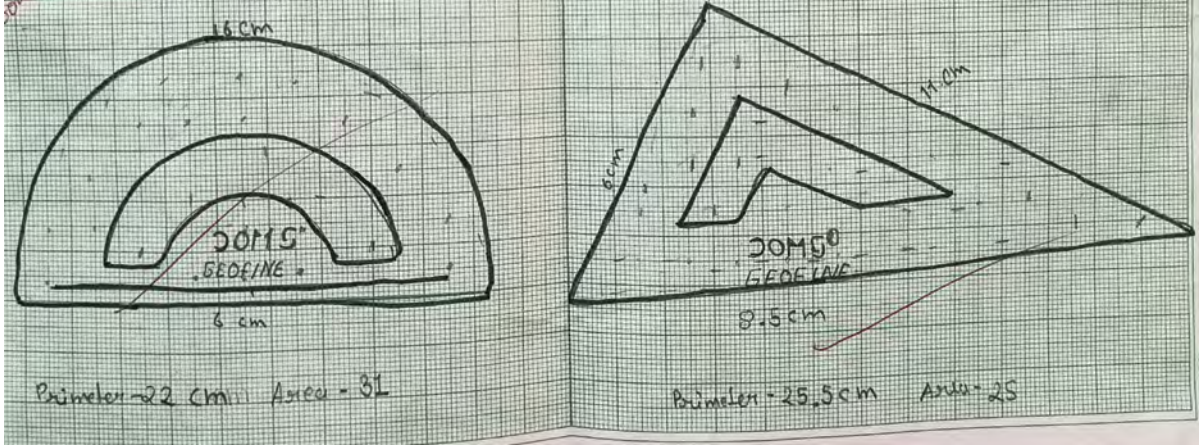 16 cm
DOMS
GEOFINE
6 cm
Primeter-22 cm Area - 31
6cm
11 cm
DOMS
GEOFINE
8.5 cm
Primeter - 25.5cm Area-25